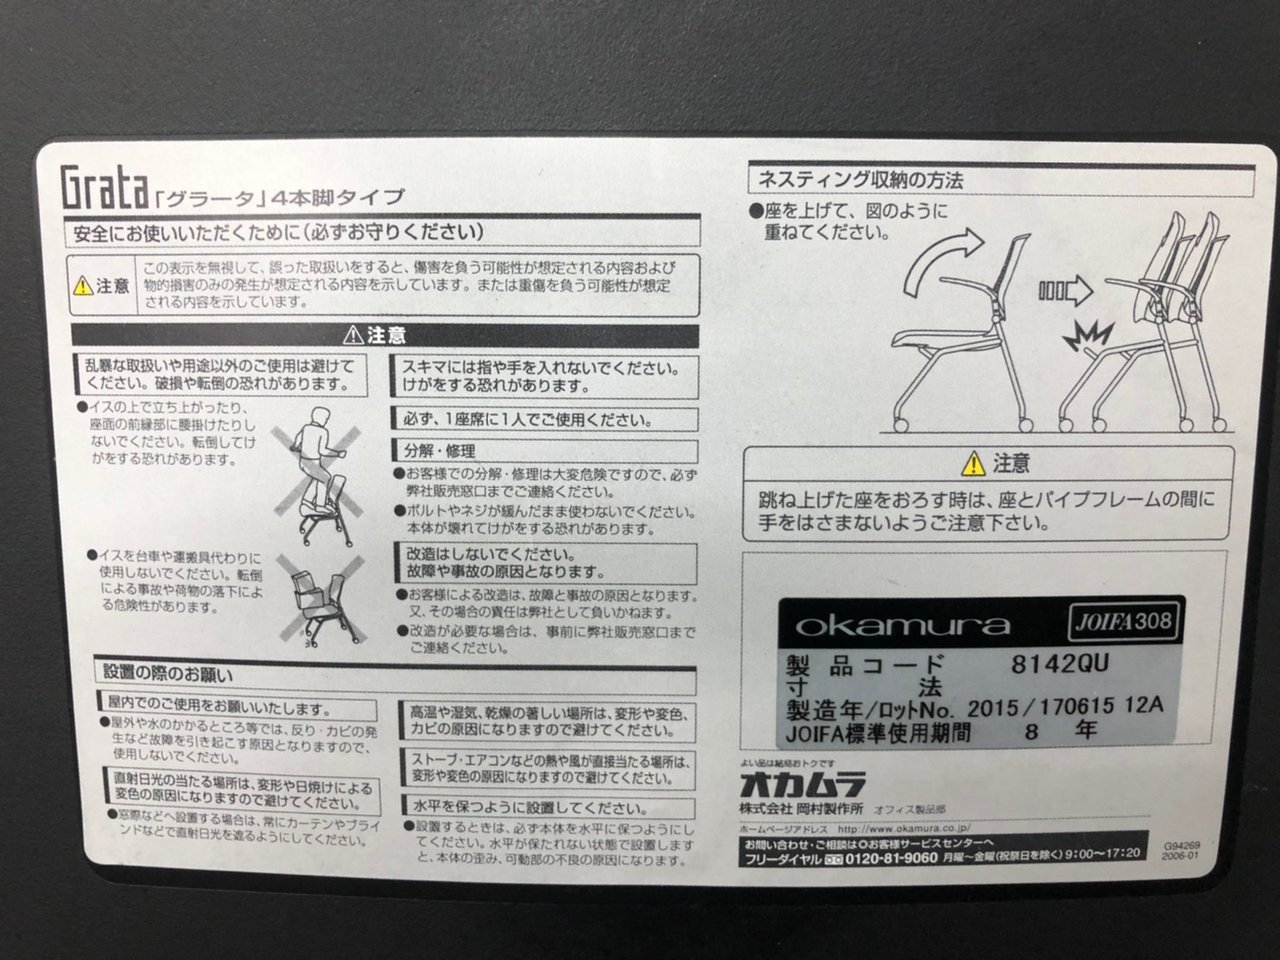 Grata「グラータ」4本脚タイプ
安全にお使いいただくために(必ずお守りください)
注意
この表示を無視して、誤った取扱いをすると、傷害を負う可能性が想定される内容および
物的損害のみの発生が想定される内容を示しています。または重傷を負う可能性が想定
される内容を示しています。
注意
乱暴な取扱いや用途以外のご使用は避けて
ください。破損や転倒の恐れがあります。
●イスの上で立ち上がったり、
座面の前縁部に腰掛けたりし
ないでください。転倒してけ
がをする恐れがあります。
●イスを台車や運搬具代わりに
使用しないでください。転倒
による事故や荷物の落下によ
る危険性があります。
スキマには指や手を入れないでください。
けがをする恐れがあります。
必ず、1座席に1人でご使用ください。
分解・修理
●お客様での分解・修理は大変危険ですので、必ず
弊社販売窓口までご連絡ください。
●ボルトやネジが緩んだまま使わないでください。
本体が壊れてけがをする恐れがあります。
改造はしないでください。
故障や事故の原因となります。
●お客様による改造は、故障と事故の原因となります。
又、その場合の責任は弊社として負いかねます。
●改造が必要な場合は、事前に弊社販売窓口まで
ご連絡ください。
設置の際のお願い
屋内でのご使用をお願いいたします。
●屋外や水のかかるところ等では、反り・カビの発
生など故障を引き起こす原因となりますので、
使用しないでください。
直射日光の当たる場所は、変形や日焼けによる
変色の原因になりますので避けてください。
●窓際などへ設置する場合は、常にカーテンやブライ
ンドなどで直射日光を遮るようにしてください。
高温や湿気、乾燥の著しい場所は、変形や変色、
カビの原因になりますので避けてください。
ストーブ・エアコンなどの熱や風が直接当たる場所は、
変形や変色の原因になりますので避けてください。
水平を保つように設置してください。
●設置するときは、必ず本体を水平に保つようにし
てください。水平が保たれない状態で設置します
と、本体の歪み、可動部の不良の原因になります。
ネスティング収納の方法
●座を上げて、図のように
重ねてください。
注意
跳ね上げた座をおろす時は、座とパイプフレームの間に
手をはさまないようご注意下さい。
okamura JOIFA308
製品コード 8142QU
寸法
製造年/ロットNo. 2015/170615 12A
JOIFA標準使用期間 8 年
よい品は結局おトクです
オカムラ
株式会社 岡村製作所 オフィス製品部
ホームページアドレス http://www.okamura.co.jp/
お問い合わせ・ご相談はお客様サービスセンターへ
フリーダイヤル 0120-81-9060 月曜〜金曜(祝祭日を除く)9:00〜17:20
G94269
2006-01